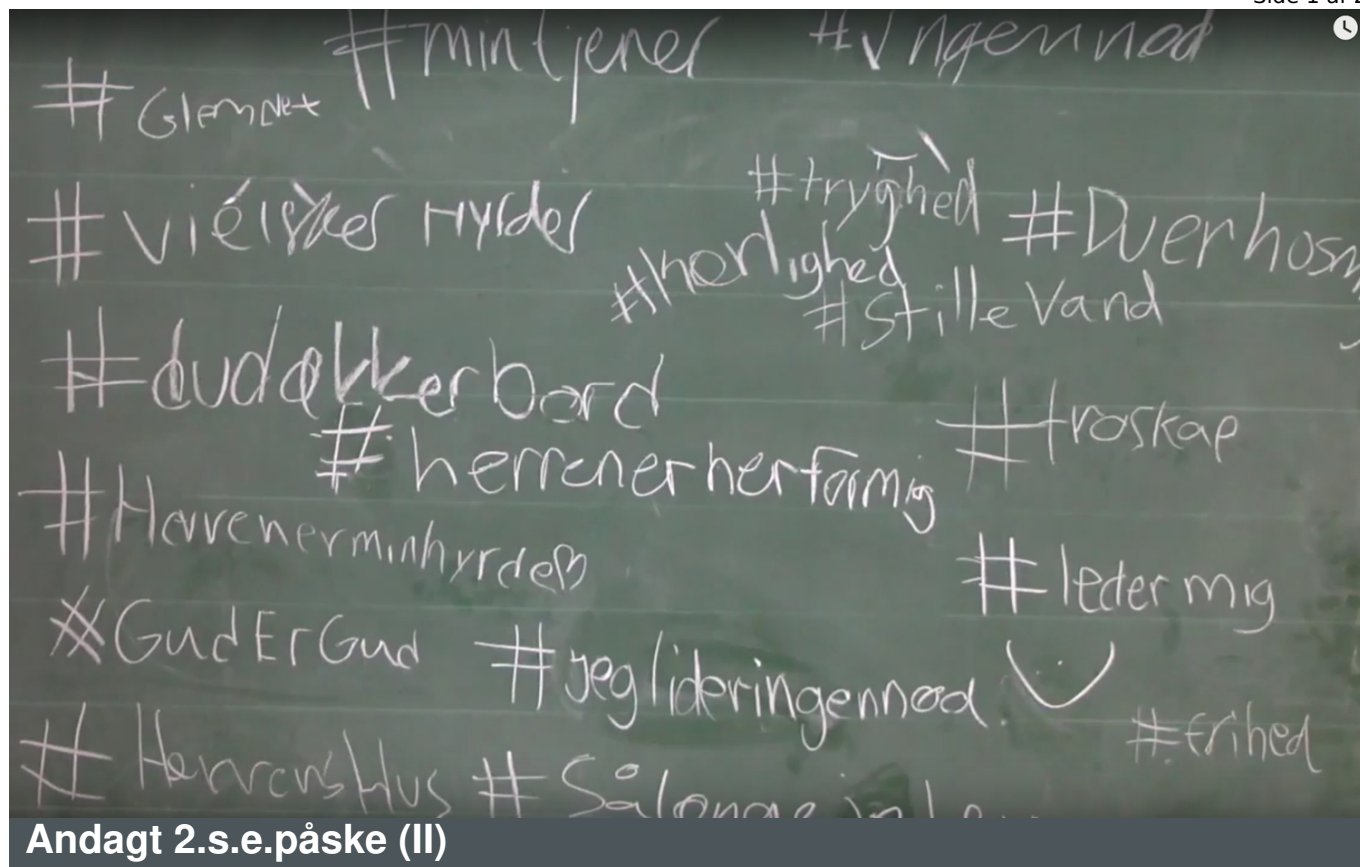 Side 1 af 2
#mintjener #Ingennød
#GlemDet
#tryghed
#vielsker Hyrder
#Duerhosm
#kærlighed
#StilleVand
#dudækkerbord
#troskap
#herrenerherformig
#Herrenerminhyrde
#ledermig
#GudErGud
#jeglideringennød
#frihed
#HerrensHus #Sålænge
Andagt 2.s.e.påske (II)